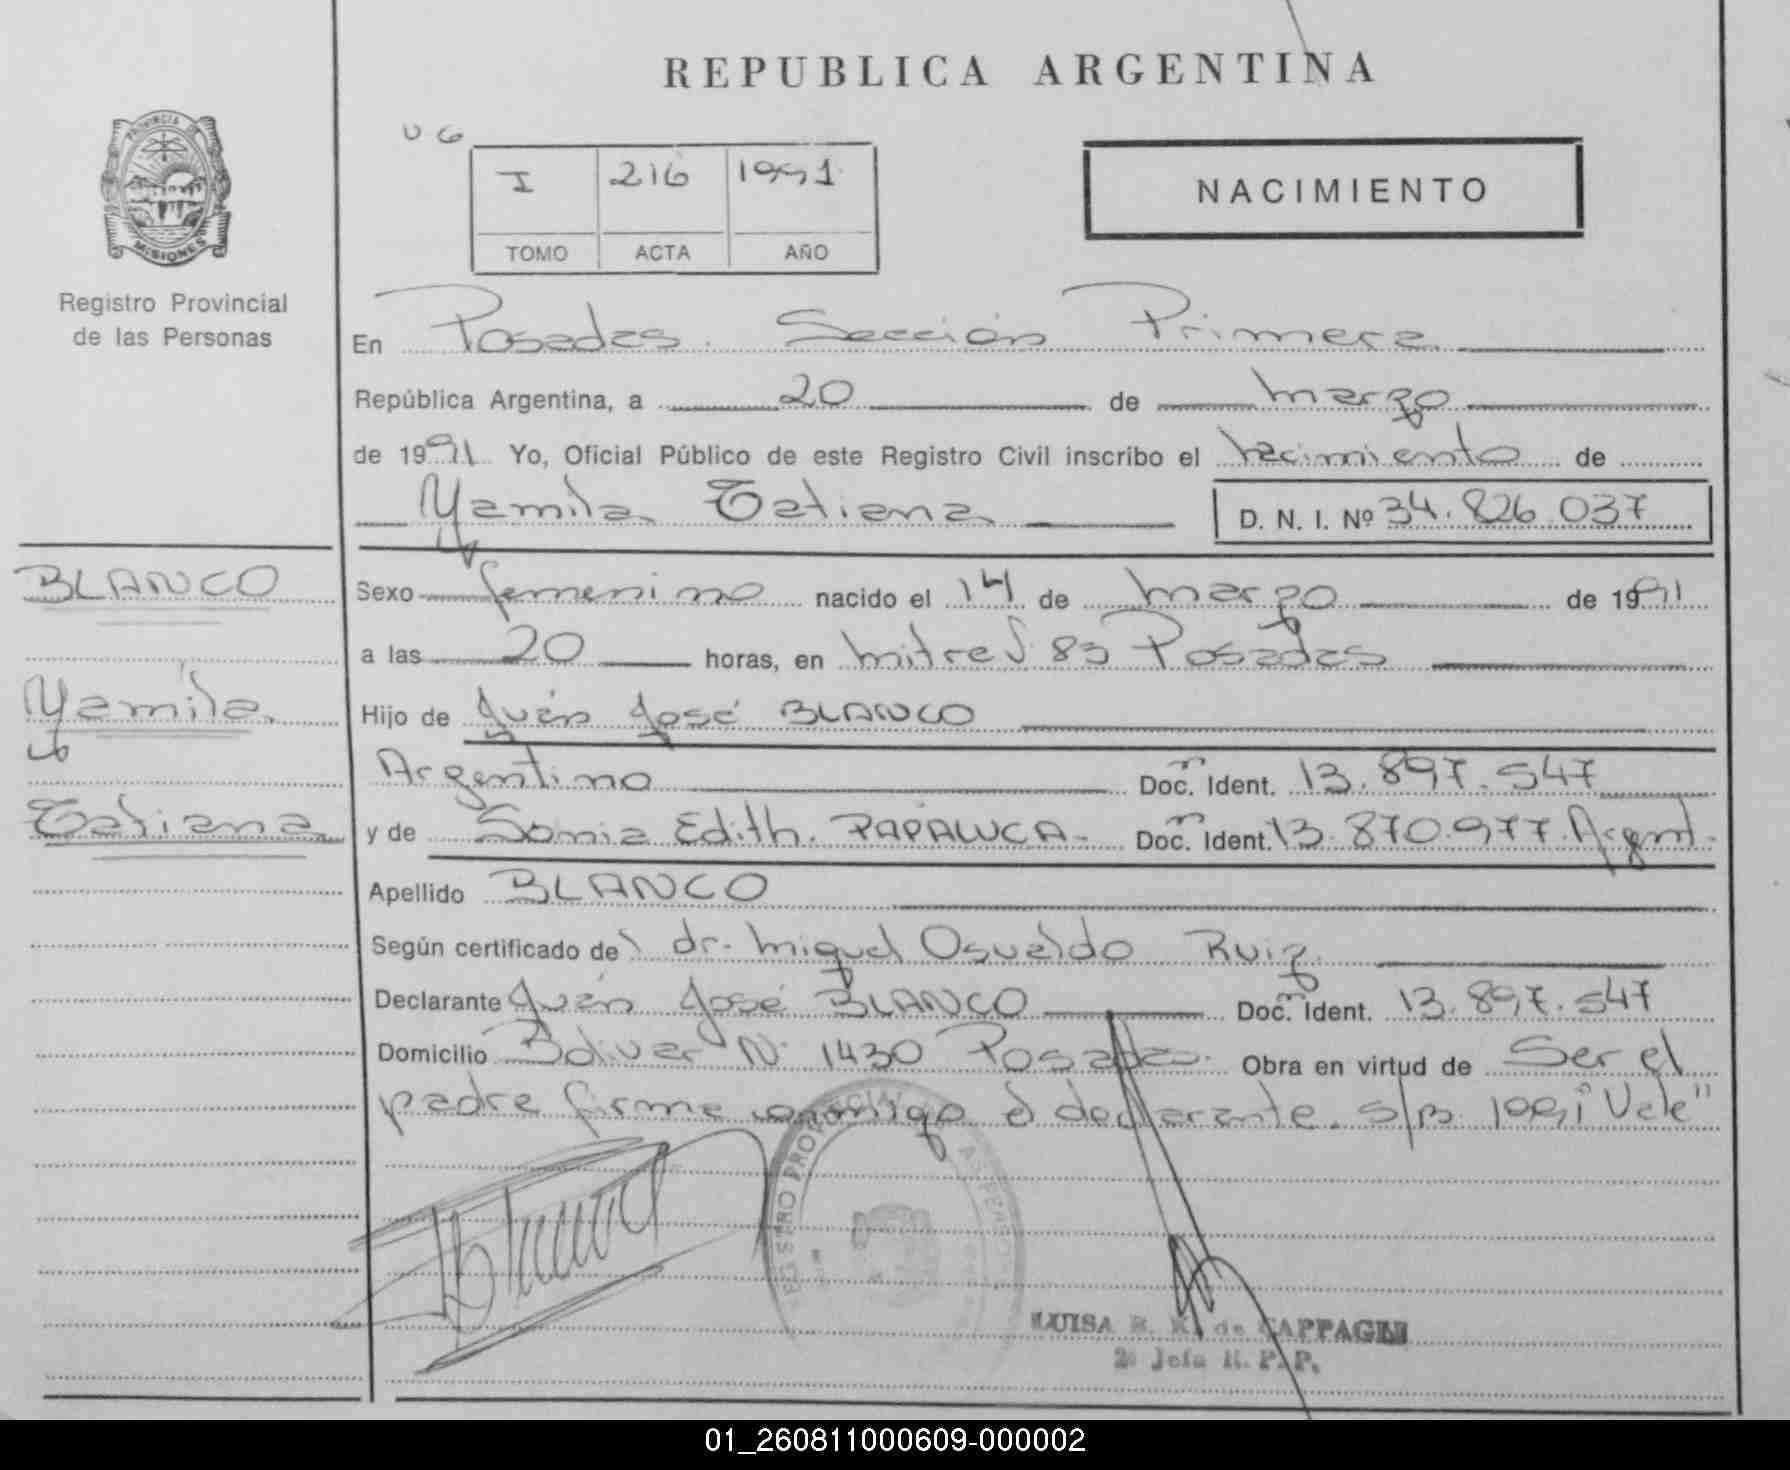 REPUBLICA ARGENTINA
U G
I 216 1991
TOMO ACTA AÑO
NACIMIENTO
PROVINCIA DE
MISIONES
Registro Provincial
de las Personas
En Posadas. Sección Primera
República Argentina, a 20 de marzo
de 1991 Yo, Oficial Público de este Registro Civil inscribo el nacimiento de
Yamila Tatiana D. N. I. Nº 34.826.037
BLANCO
Yamila
Tatiana
Sexo femenino nacido el 14 de marzo de 1991
a las 20 horas, en Mitre 83 Posadas
Hijo de Juan José BLANCO
Argentino Doc. Ident. 13.897.547
y de Sonia Edith. PAPALUCA- Doc. Ident. 13.870.977. Argent.
Apellido BLANCO
Según certificado del dr. Miguel Osvaldo Ruiz
Declarante Juan José BLANCO Doc. Ident. 13.897.547
Domicilio Bolivar Nº 1430 Posadas. Obra en virtud de Ser el
padre firma conmigo el declarante. s/B 1991 "Vale"
Blanco
REGISTRO PROVINCIAL
LUISA de CAPPAGLI
2ª Jefa R. P. P.
01_260811000609-000002